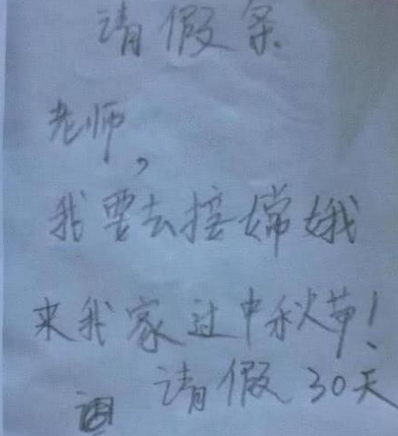 请假条
老师,
我要去接嫦娥
来我家过中秋节!
请假30天